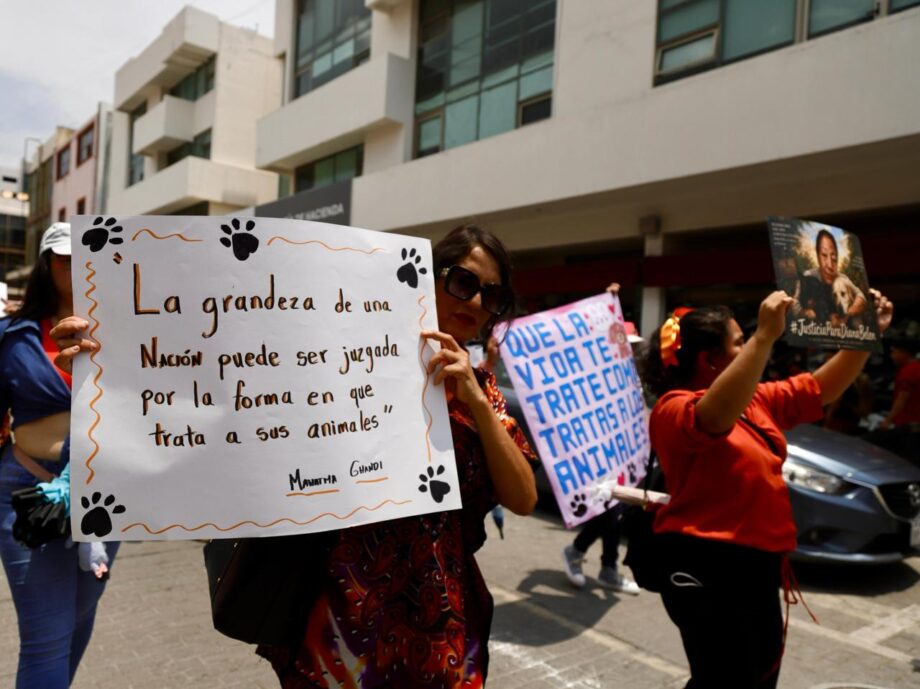 "La grandeza de una
Nación puede ser juzgada
por la forma en que
trata a sus animales"
Mahatma Ghandi
QUE LA
VIDA TE
TRATE COMO
TRATAS A LOS
ANIMALES
#JusticiaParaDianaBelen
DE HACIENDA